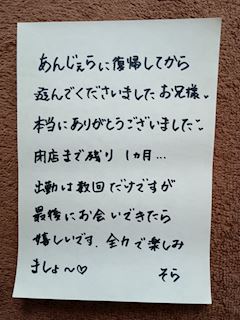 あんじぇらに復帰してから
遊んでくださいましたお兄様
本当にありがとうございました
閉店まで残り 1ヵ月...
出勤は数回だけですが
最後にお会いできたら
嬉しいです。全力で楽しみ
ましょ〜♡
そら